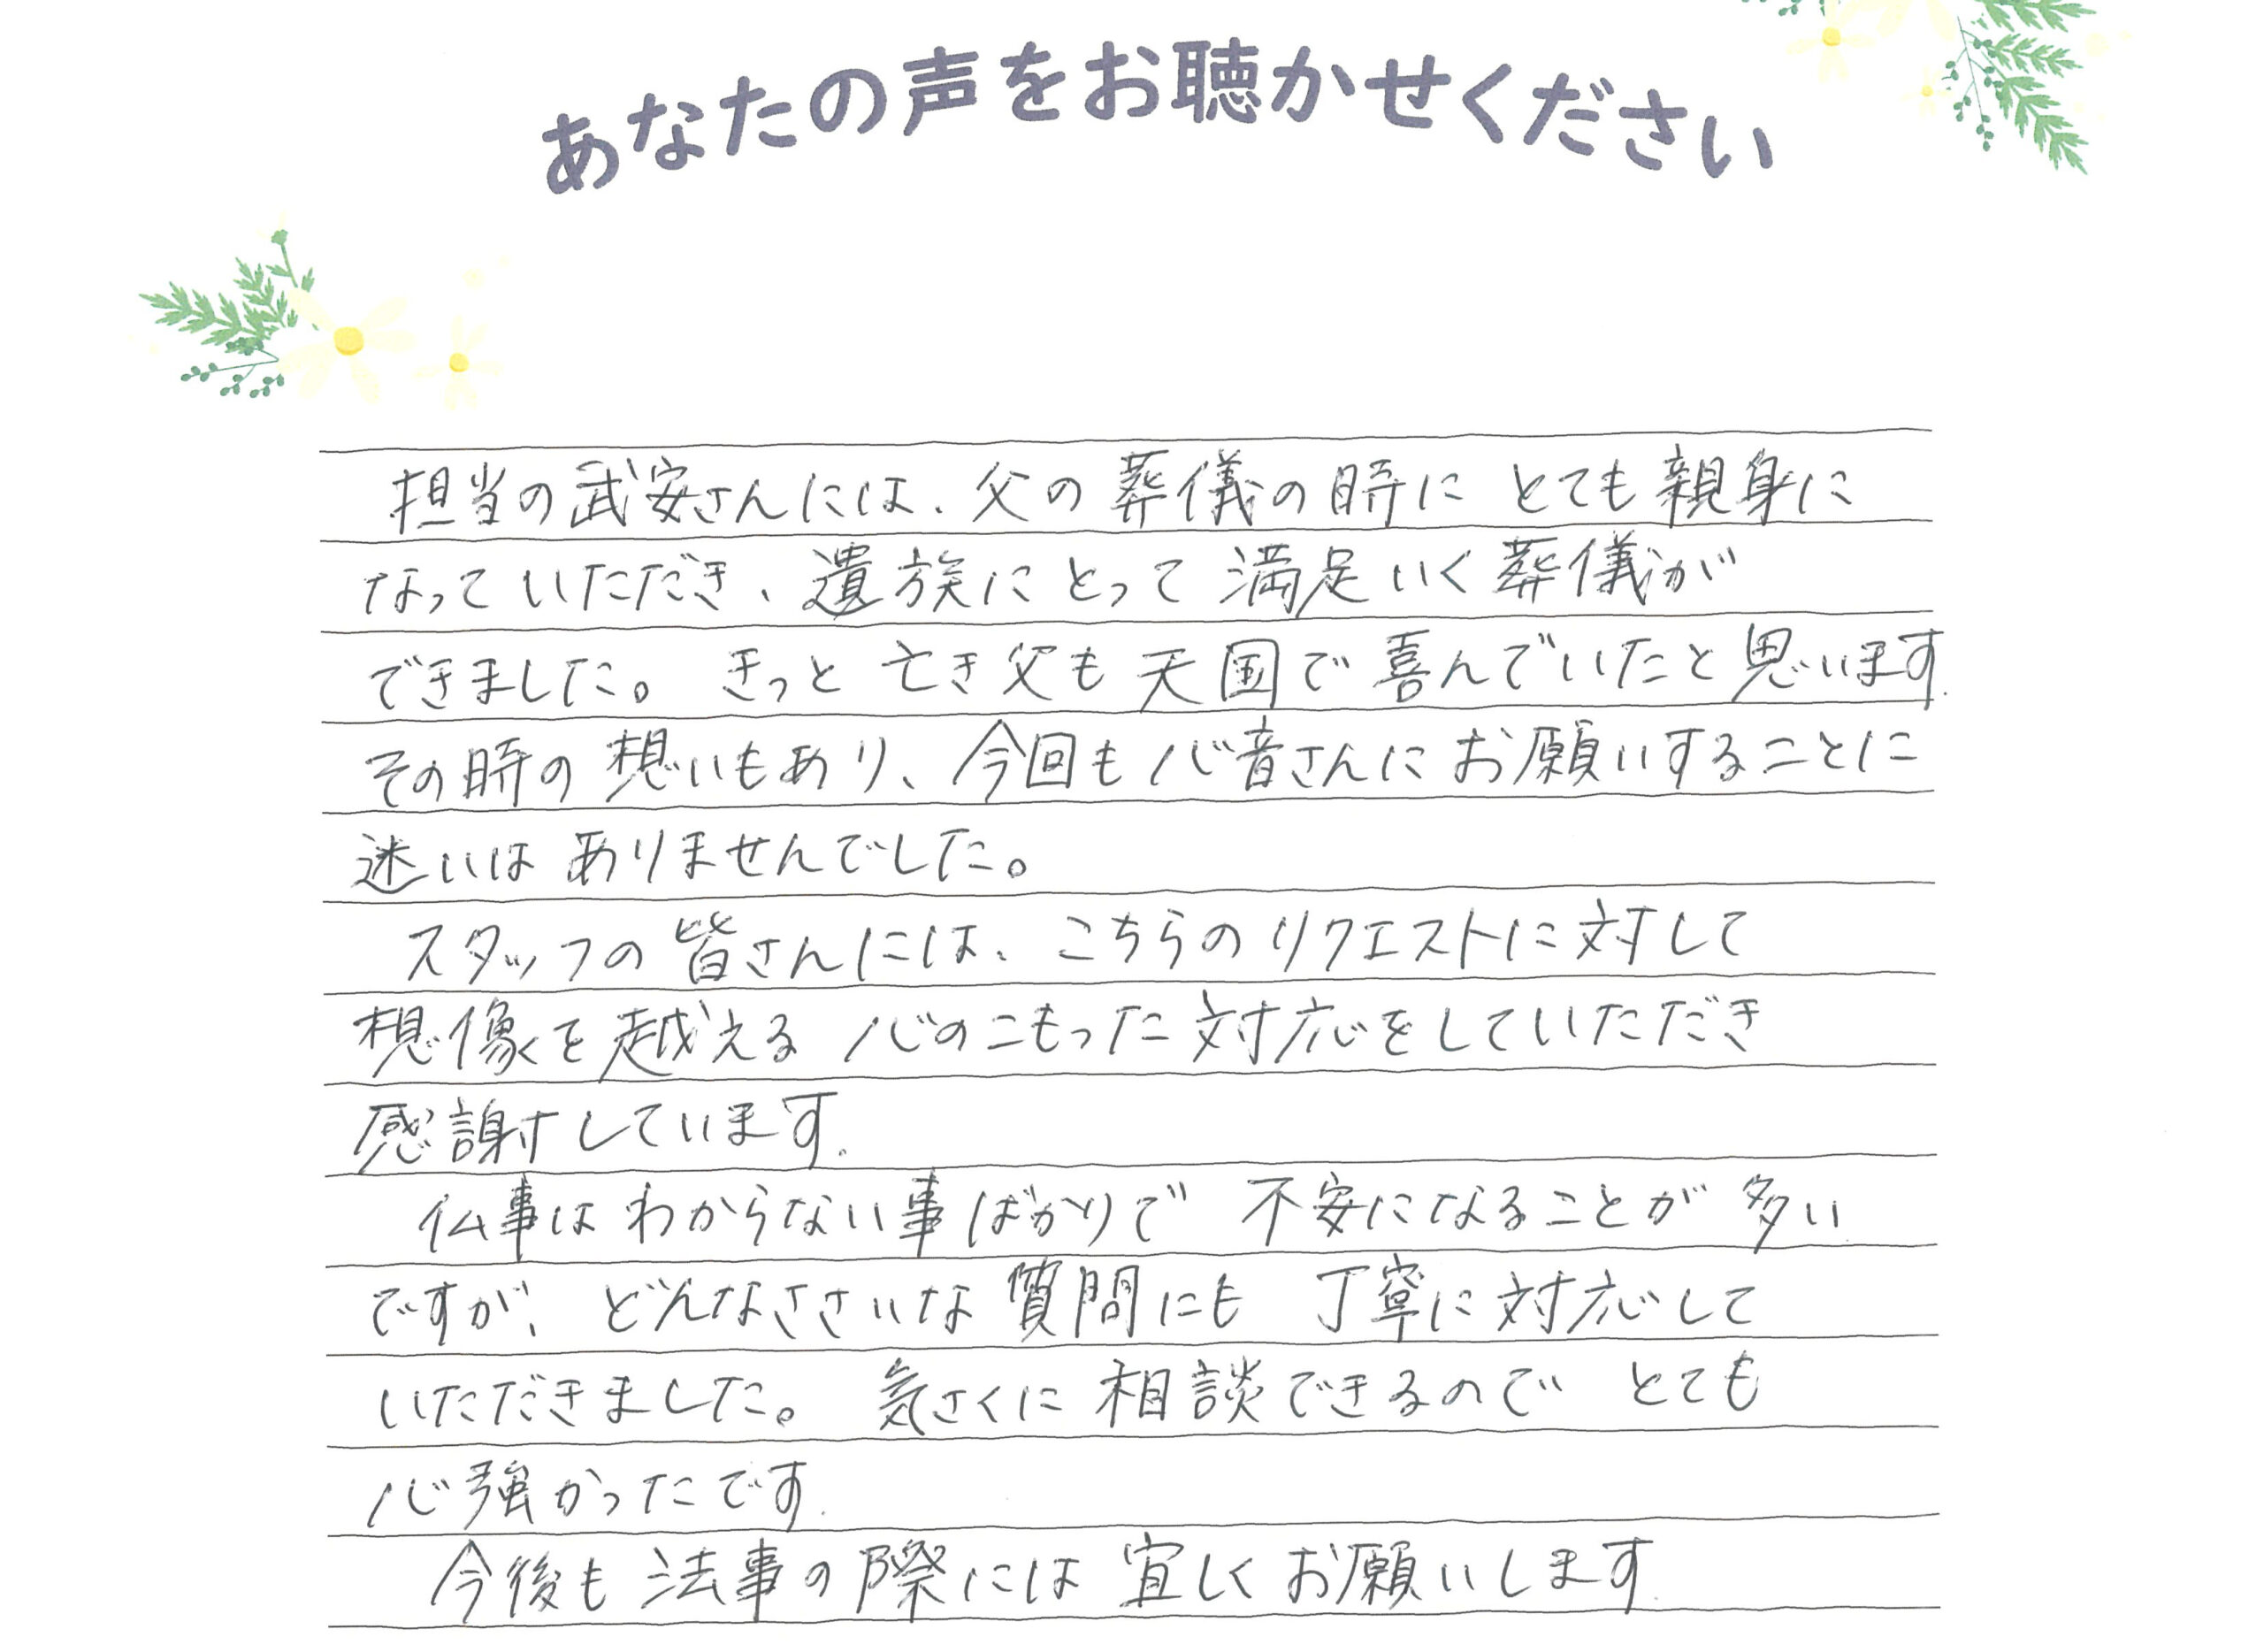 あなたの声をお聴かせください
担当の武安さんには、父の葬儀の時に とても親身に
なっていただき、遺族にとって満足いく葬儀が
できました。 きっと 亡き父も天国で喜んでいたと思います.
その時の想いもあり、今回も心音さんにお願いすることに
迷いは ありませんでした。
スタッフの皆さんには、こちらのリクエストに対して
想像を越える 心のこもった対応をしていただき
感謝しています.
仏事は わからない事ばかりで 不安になることが 多い
ですが、どんなささいな質問にも 丁寧に対応して
いただきました。 気さくに相談できるので とても
心強かったです.
今後も法事の際には宜しくお願いします.